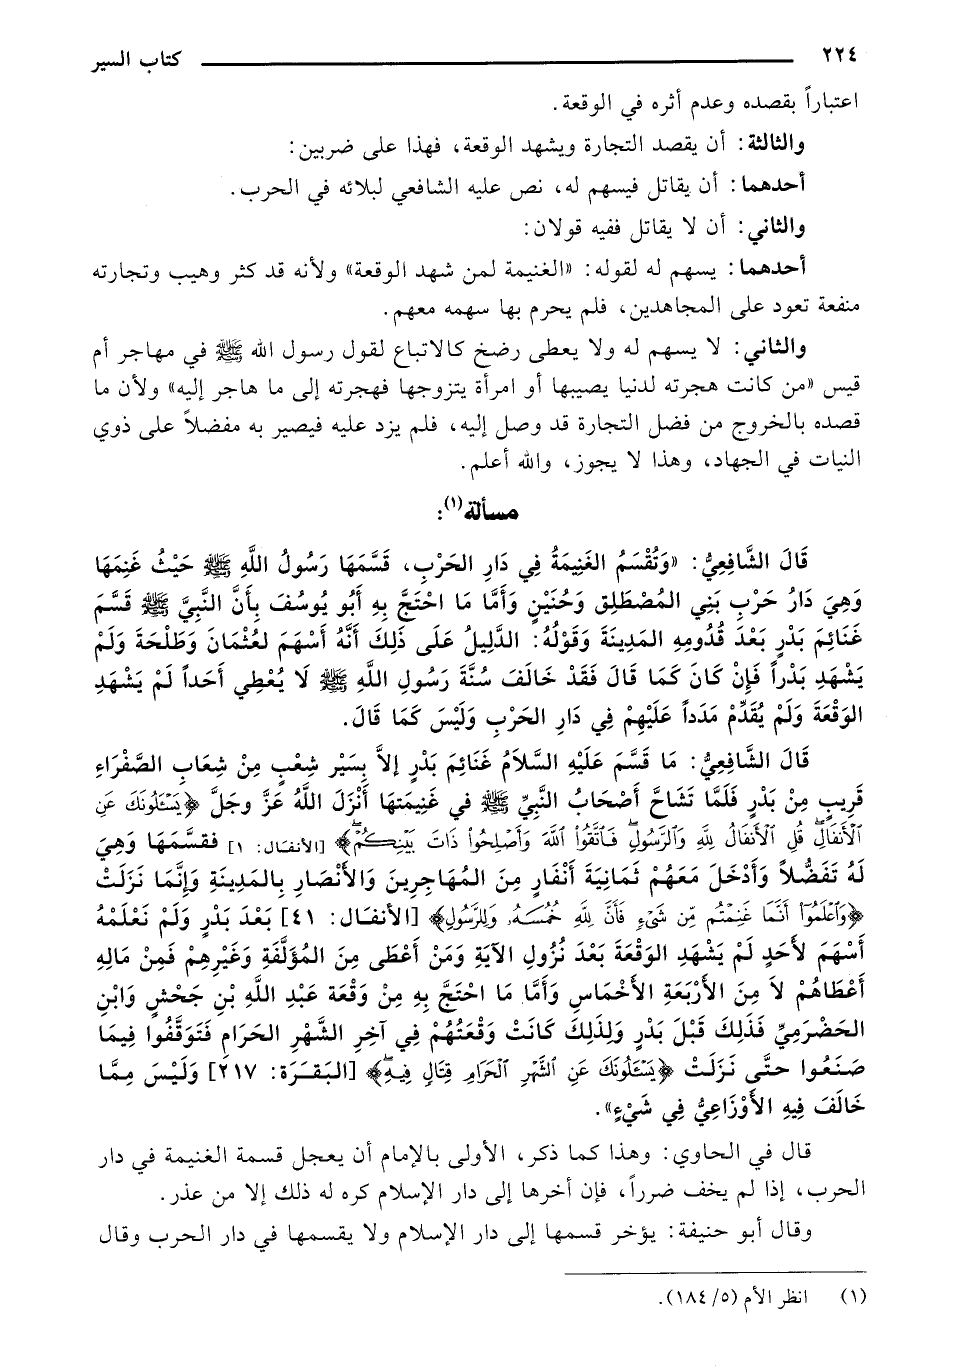 ٢٢٤ كتاب السير
اعتباراً بقصده وعدم أثره في الوقعة.
والثالثة: أن يقصد التجارة ويشهد الوقعة، فهذا على ضربين:
أحدهما: أن يقاتل فيسهم له، نص عليه الشافعي لبلائه في الحرب.
والثاني: أن لا يقاتل ففيه قولان:
أحدهما: يسهم له لقوله: «الغنيمة لمن شهد الوقعة» ولأنه قد كثر وهيب وتجارته
منفعة تعود على المجاهدين، فلم يحرم بها سهمه معهم.
والثاني: لا يسهم له ولا يعطى رضخ كالاتباع لقول رسول الله ﷺ في مهاجر أم
قيس «من كانت هجرته لدنيا يصيبها أو امرأة يتزوجها فهجرته إلى ما هاجر إليه» ولأن ما
قصده بالخروج من فضل التجارة قد وصل إليه، فلم يزد عليه فيصير به مفضلاً على ذوي
النيات في الجهاد، وهذا لا يجوز، والله أعلم.
مسألة(١):
قَالَ الشَّافِعِيُّ: «وَتُقْسَمُ الغَنِيمَةُ فِي دَارِ الحَرْبِ، قَسَّمَهَا رَسُولُ اللَّهِ ﷺ حَيْثُ غَنِمَهَا
وَهِيَ دَارُ حَرْبِ بَنِي المُصْطَلِقِ وَحُنَيْنٍ وَأَمَّا مَا احْتَجَّ بِهِ أَبُو يُوسُفَ بِأَنَّ النَّبِيَّ ﷺ قَسَّمَ
غَنَائِمَ بَدْرٍ بَعْدَ قُدُومِهِ المَدِينَةَ وَقَوْلُهُ: الدَّلِيلُ عَلَى ذَلِكَ أَنَّهُ أَسْهَمَ لِعُثْمَانَ وَطَلْحَةَ وَلَمْ
يَشْهَدِ بَدْراً فَإِنْ كَانَ كَمَا قَالَ فَقَدْ خَالَفَ سُنَّةَ رَسُولِ اللَّهِ ﷺ لَا يُعْطِي أَحَداً لَمْ يَشْهَدِ
الوَقْعَةَ وَلَمْ يُقَدِّمْ مَدَداً عَلَيْهِمْ فِي دَارِ الحَرْبِ وَلَيْسَ كَمَا قَالَ.
قَالَ الشَّافِعِيُّ: مَا قَسَّمَ عَلَيْهِ السَّلاَمُ غَنَائِمَ بَدْرٍ إِلاَّ بِسَيْرِ شِعْبٍ مِنْ شِعَابِ الصَّفْرَاءِ
قَرِيبٍ مِنْ بَدْرٍ فَلَمَّا تَشَاحَّ أَصْحَابُ النَّبِيِّ ﷺ في غَنِيمَتِهَا أَنْزَلَ اللَّهُ عَزَّ وجَلَّ ﴿يَسْـَٔلُونَكَ عَنِ
ٱلْأَنفَالِۖ قُلِ ٱلْأَنفَالُ لِلَّهِ وَٱلرَّسُولِۖ فَٱتَّقُوا۟ ٱللَّهَ وَأَصْلِحُوا۟ ذَاتَ بَيْنِكُمْۖ﴾ [الأنفال: ١] فقسَّمَهَا وَهِيَ
لَهُ تَفَضُّلاً وَأَدْخَلَ مَعَهُمْ ثَمَانِيَةَ أَنْفَارٍ مِنَ المُهَاجِرِينَ وَالأَنْصَارِ بِالمَدِينَةِ وَإِنَّمَا نَزَلَتْ
﴿وَٱعْلَمُوٓا۟ أَنَّمَا غَنِمْتُم مِّن شَىْءٍ فَأَنَّ لِلَّهِ خُمُسَهُۥ وَلِلرَّسُولِ﴾ [الأنفال: ٤١] بَعْدَ بَدْرٍ وَلَمْ نَعْلَمْهُ
أَسْهَمَ لأَحَدٍ لَمْ يَشْهَدِ الوَقْعَةَ بَعْدَ نُزُولِ الآيَةِ وَمَنْ أَعْطَى مِنَ المُؤَلَّفَةِ وَغَيْرِهِمْ فَمِنْ مَالِهِ
أَعْطَاهُمْ لاَ مِنَ الأَرْبَعَةِ الأَخْمَاسِ وَأَمَّا مَا احْتَجَّ بِهِ مِنْ وَقْعَةِ عَبْدِ اللَّهِ بْنِ جَحْشٍ وَابْنِ
الحَضْرَمِيِّ فَذَلِكَ قَبْلَ بَدْرٍ وَلِذَلِكَ كَانَتْ وَقْعَتُهُمْ فِي آخِرِ الشَّهْرِ الحَرَامِ فَتَوَقَّفُوا فِيمَا
صَنَعُوا حتَّى نَزَلَتْ ﴿يَسْـَٔلُونَكَ عَنِ ٱلشَّهْرِ ٱلْحَرَامِ قِتَالٍ فِيهِۖ﴾ [البَقَرَة: ٢١٧] وَلَيْسَ مِمَّا
خَالَفَ فِيهِ الأَوْزَاعِيُّ فِي شَيْءٍ».
قال في الحاوي: وهذا كما ذكر، الأولى بالإمام أن يعجل قسمة الغنيمة في دار
الحرب، إذا لم يخف ضرراً، فإن أخرها إلى دار الإسلام كره له ذلك إلا من عذر.
وقال أبو حنيفة: يؤخر قسمها إلى دار الإسلام ولا يقسمها في دار الحرب وقال
(١) انظر الأم (٥/ ١٨٤).